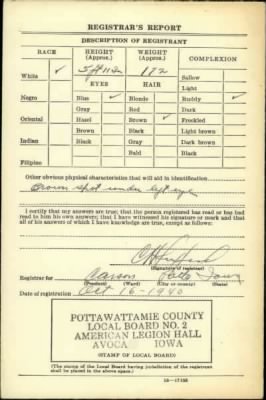 REGISTRAR'S REPORT
DESCRIPTION OF REGISTRANT
RACE HEIGHT (Approx.) WEIGHT (Approx.) COMPLEXION
White ✓ 5 ft 11 in 172 Sallow
EYES HAIR Light
Negro Blue ✓ Blonde Ruddy ✓
Gray Red Dark
Oriental Hazel Brown ✓ Freckled
Brown Black Light brown
Indian Black Gray Dark brown
Bald Black
Filipino
Other obvious physical characteristics that will aid in identification
Brown spot under left eye
I certify that my answers are true; that the person registered has read or has had
read to him his own answers; that I have witnessed his signature or mark and that
all of his answers of which I have knowledge are true, except as follows:
(Signature of registrar)
Registrar for Carson Potta Iowa
(Precinct) (Ward) (City or county) (State)
Date of registration Oct 16-1940
POTTAWATTAMIE COUNTY
LOCAL BOARD NO. 2
AMERICAN LEGION HALL
AVOCA IOWA
(STAMP OF LOCAL BOARD)
(The stamp of the Local Board having jurisdiction of the registrant
shall be placed in the above space.)